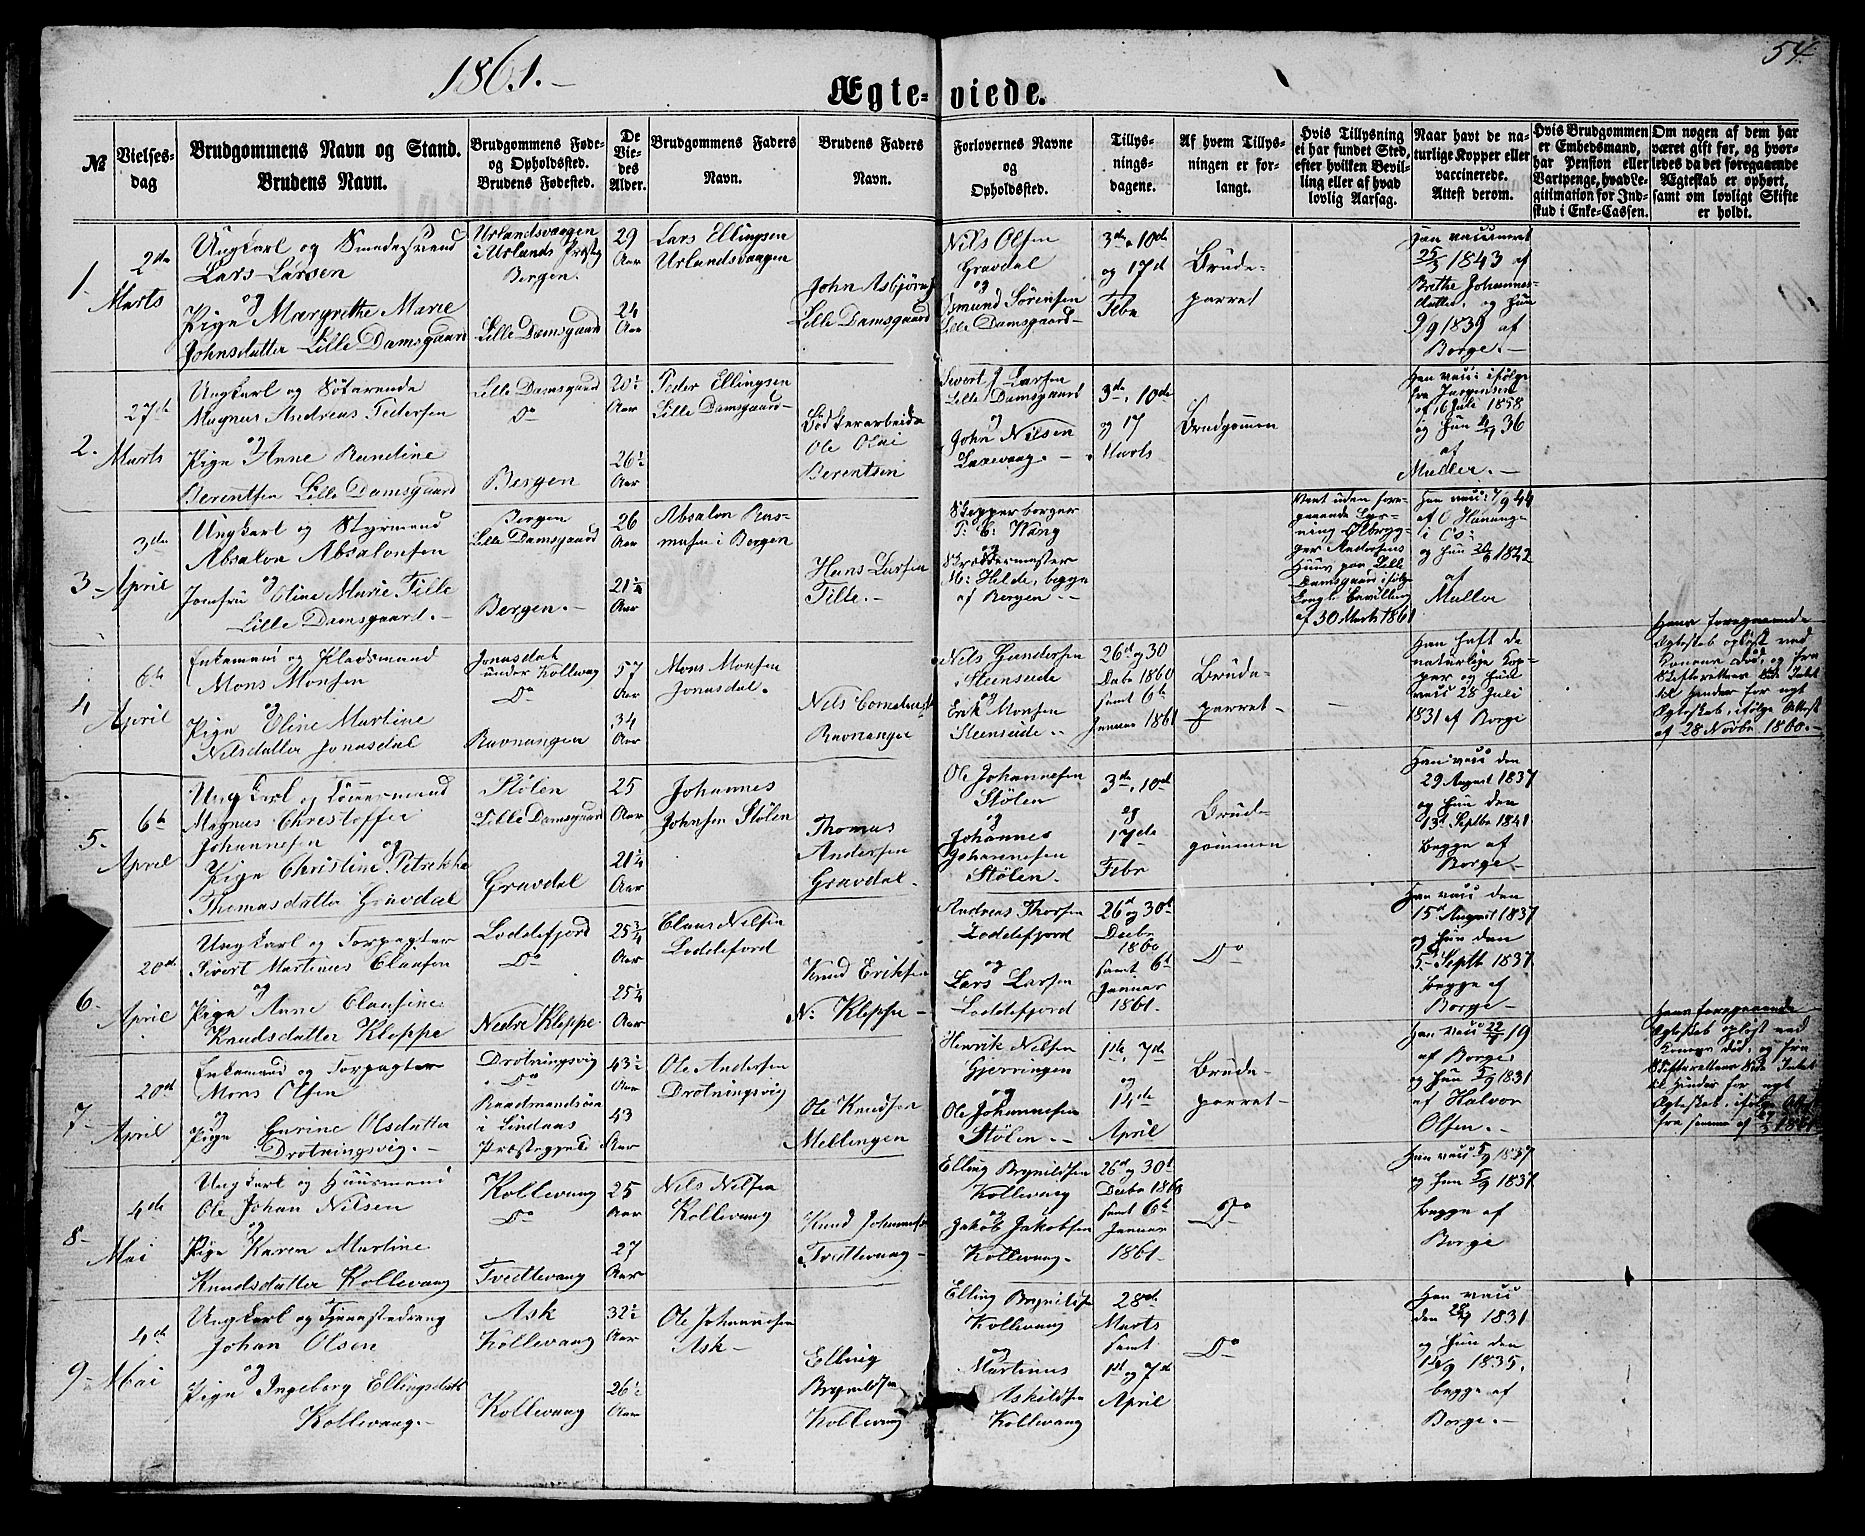 1861.-
54.
Ægte-viede.
№
Vielses-
dag
Brudgommens Navn og Stand.
Brudens Navn.
Brudgommens Føde-
og Opholdssted.
Brudens Fødested.
De
Vie-
des
Alder.
Brudgommens Faders
Navn.
Brudens Faders
Navn.
Forlovernes Navne
og
Opholdssted.
Tillys-
nings-
dagene.
Af hvem Tillys-
ningen er for-
langt.
Hvis Tillysning
ei har fundet Sted,
efter hvilken Bevil-
ling eller af hvad
lovlig Aarsag.
Naar havt de na-
turlige Kopper eller
vaccinerede.
Attest derom.
Hvis Brudgommen
er Embedsmand,
har Pension eller
Vartpenge, hvad Le-
gitimation for Ind-
stud i Enke-Cassen.
Om nogen af dem har
været gift før, og hvor-
ledes da det foregaaende
Ægteskab er ophørt,
samt om lovligt Skifte
er holdt.
1-
2de
Marts
Ungkarl og
Lars Larsen
og
Pige Margrethe Marie
Johnsdatter Lille Damsgaard
Urlandsvangen
i Urlands
Bergen.
Lille Damsgaard
29
Aar
24
Aar
Lars Ellingsen
Urlandsvangen
John Asbjørns
Lille Damsgaard
Nils Olsen
Gravdal
og
Sørensen
Lille Damsgaard-
3de, 10de
og 17d
Febr
Brude-
parret
Han vaccineret
25/3 1843 af
Brithe Johannes-
datter, og hun
9/9 1839 af
Borge.-
2.
27de
Marts
Ungkarl og Søfarende
Magnus Andreas Pedersen
og
Pige Anne Randine
Berentsen Lille Damsgaard
Lille Damsgaard
Do
Bergen
Aar
26½
Aar
Peder Ellingsen
Lille Damsgaard-
Ole Olai
Berentsen
Sivert J Larsen
Lille Damsgaard
og
John Nilsen
Laxevaag.-
3de, 10de
og 17
Marts
Brudgommen
Han vacc: ifølge
fra Jurgensen
af 16 Juli 1858
og hun
36
af
Muller.-
3-
3die
April
Ungkarl og Styrmand
Absalon Absalonsen
og
Jomfru Eline Marie Tille
Lille Damsgaard.-
Bergen
Lille Damsgaard
Bergen.-
26
Aar
21¼
Aar
Absalon Ras-
musen i Bergen
Hans Larsen
Tille.-
Skipperborger
P: C: Wang
og
Skræddermester
H: Helde, begge
af Bergen.-
Viet uden fore-
gaaende Lys-
ning
Andersens
Huus paa Lille
Damsgaard ifølge
Kongl: bevilling
af 30 Marts 1861
Han vacc: 7/9 44
af O
i Co:
og hun
af
Muller
4
6te
April
Enkemand og Pladsmand
Mons Monsen
og
Pige Oline Martine
Nilsdatter Jonasdal
Jonasdal
under Kollevaag
Do
Ravnanger
57
Aar
34
Aar
Mons Monsen
Jonasdal.
Nils Cornelius
Ravnanger
Nils Gundersen
Steenseide
og
Erik Monsen
Steenseide.-
26d og 30
Decbr 1860
samt 6te
Januar 1861
Brude-
parret-
Han haft de
naturlige Kop-
per og hun
vacc 28 Juli
1831 af Borge
Hans foregaaende
Ægteskab opløst ved
Konens Død, og fra
Skifterettens Side Intet
til Hinder for nyt
Ægteskab, ifølge Attest
af 28 Novbr 1860.-
5-
6te
April
Ungkarl og Tømmermand
Magnus Christoffer
Johannesen
og
Pige Christine Petrikke
Thomasdatter Gravdal
Stølen
Lille Damsgaard
Gravdal
25
Aar
21¼
Aar
Johannes
Johnsen Stølen
Thomas
Andersen
Gravdal.
Ole Johannesen
Stølen
og
Johannes
Johannesen
Stølen.
3de, 10de
og
17de
Febr
Brud-
gommen
Han vacc den
29 August 1837
og hun den
13d Septbr 1841
begge af
Borge-
6-
20de
April
Ungkarl og Forpagter
Sivert Martinus Clausen
og
Pige Anne Clausine
Knudsdatter Kleppe
Loddefjord
Do
Nedre Kleppe
25¾
Aar
25¼
Aar
Claus Nilsen
Loddefjord
Knud Eriksen
N. Kleppe-
Andreas Thorsen
Loddefjord
og
Lars Larsen
Loddefjord
26d og 30t
Decbr
1860
samt 6t
Januar
1861.
Do
Han vacc den
15d August 1837
og hun den
5- Septb 1837
begge af
Borge-
7-
20de
April
Enkemand og Forpagter
Mons Olsen
og
Pige Enrine Olsdatter
Drotningsvig.-
Drotningsvig
Do
i Lindaas
Præstegjeld
43½
Aar
43
Aar
Ole Andersen
Drotningsvig
Ole Knudsen
Mellingen
Henrik Nilsen
Gjerringen
og
Ole Johannesen
Stølen.-
1ste, 7de
og
14de
April
Brude-
parret-
Han vacc
19
af Borge,
og hun 5/9 1831
af Halvor
Olsen.-
Hans foregaaende
Ægteskab opløst ved
Konens Død, og fra
Skifterettens Side Intet
til Hinder for nyt
Ægteskab, ifølge Attest
fra samme af
1861
8-
4de
Mai
Ungkarl og Huusmand
Ole Johan Nilsen
og
Pige Karen Martine
Knudsdatter Kollevaag
Kollevaag
Do
Tvedtevaag
25
Aar
27
Aar
Nils Nilsen
Kollevaag
Knud Johannesen
Tvedtevaag-
Elling Brynildsen
Kollevaag
og
Jakob Jakobsen
Kollevaag-
26d og 30t
Decbr 1860
samt 6t
Januar
1861.
Do
Han vacc 5/9 1837
og hun 5/9 1837
begge af
Borge
9-
4de
Mai
Ungkarl og
Johan Olsen
og
Pige Ingeborg Ellingsdatt
Kollevaag-
Ask
Kollevaag
Kollevaag
32½
Aar
26½
Aar
Ole Johannesen
Ask-
Elling
Brynildsen
Kollevaag
Elling Brynildsen
Kollevaag
og
Martinus
Askildsen
Kollevaag
28de
Marts
samt
1st og 7de
April
Do
Han vacc
den 28/9 1831
og hun den
1835.
begge af
Borge.-